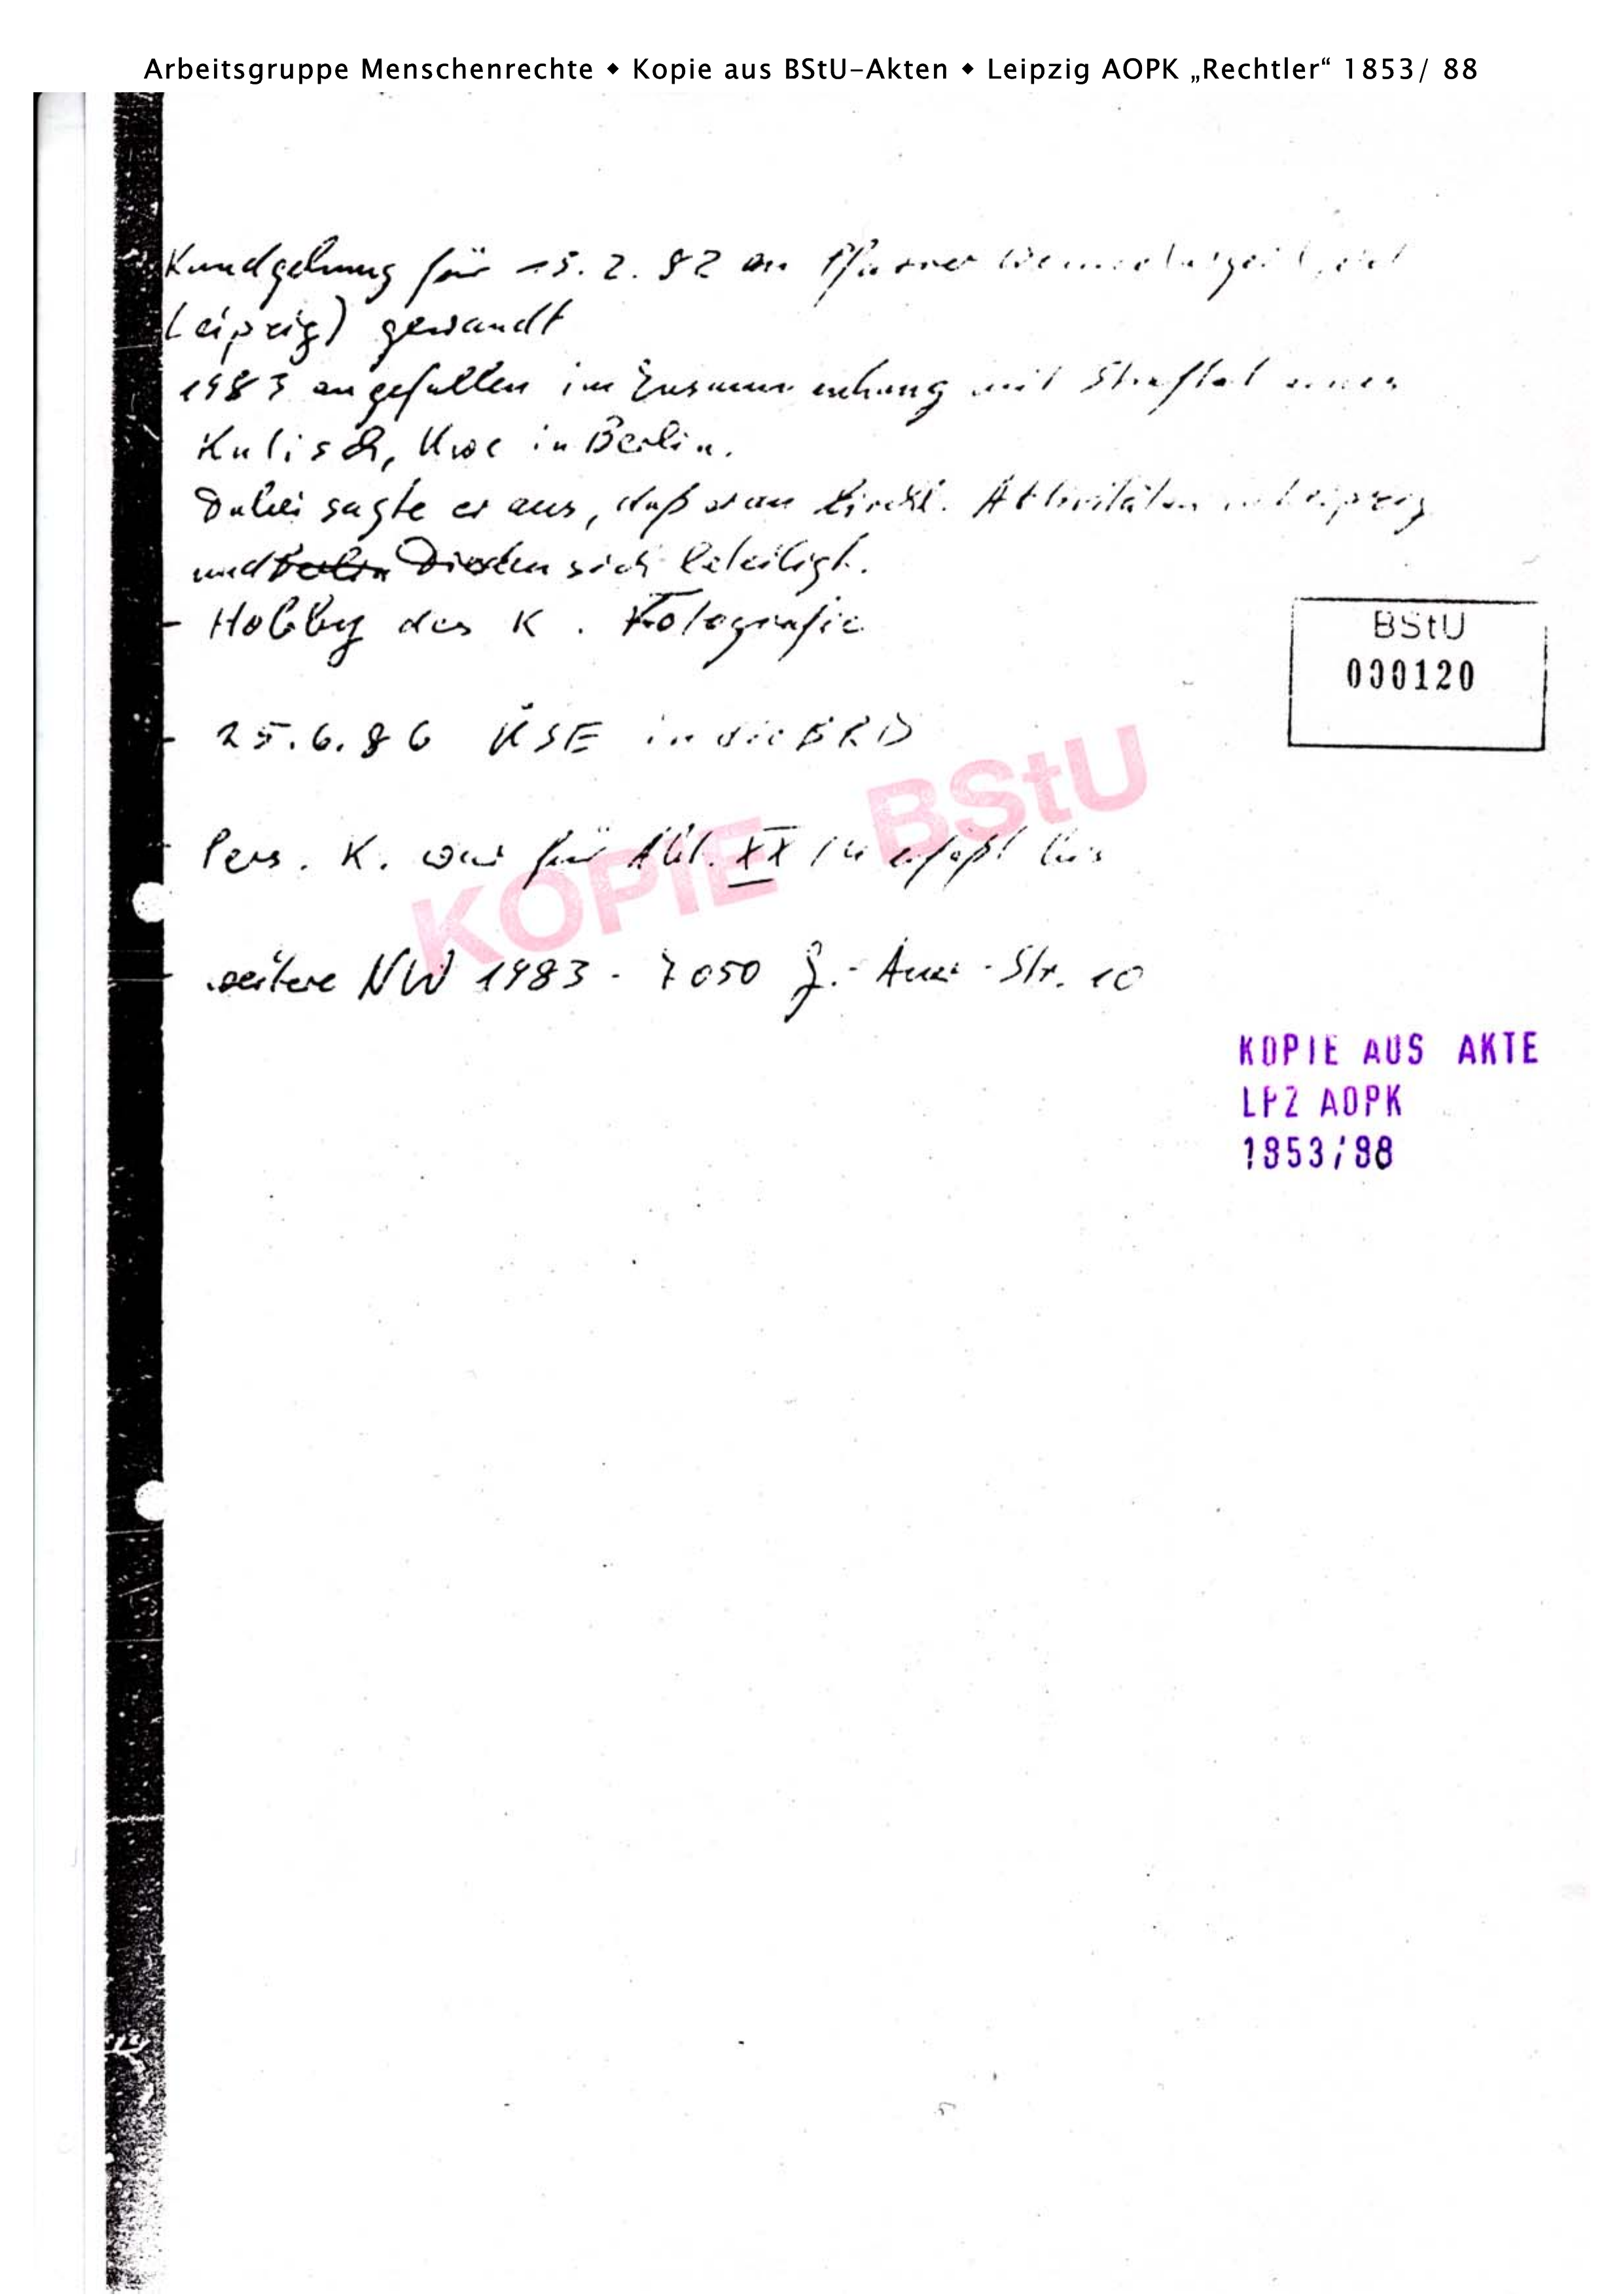 Arbeitsgruppe Menschenrechte ◆ Kopie aus BStU-Akten ◆ Leipzig AOPK „Rechtler“ 1853/ 88
Kundgebung für 15. 2. 82 an Pfarrer
Leipzig) gewandt
1983 angefallen im Zusammenhang mit Straftat eines
Kulisch, Uwe in Berlin.
Dabei sagte er aus, daß er an kirchl. Aktivitäten in Leipzig
und Berlin Dresden sich beteiligt.
- Hobby des K. Fotografie
BStU
000120
- 25.6.86 ÜSE in die BRD
KOPIE BStU
- Pers. K. war für Abt. XX / erfaßt bis
- weitere NW 1983 - 7050 Str. 10
KOPIE AUS AKTE
LPZ AOPK
1853/88